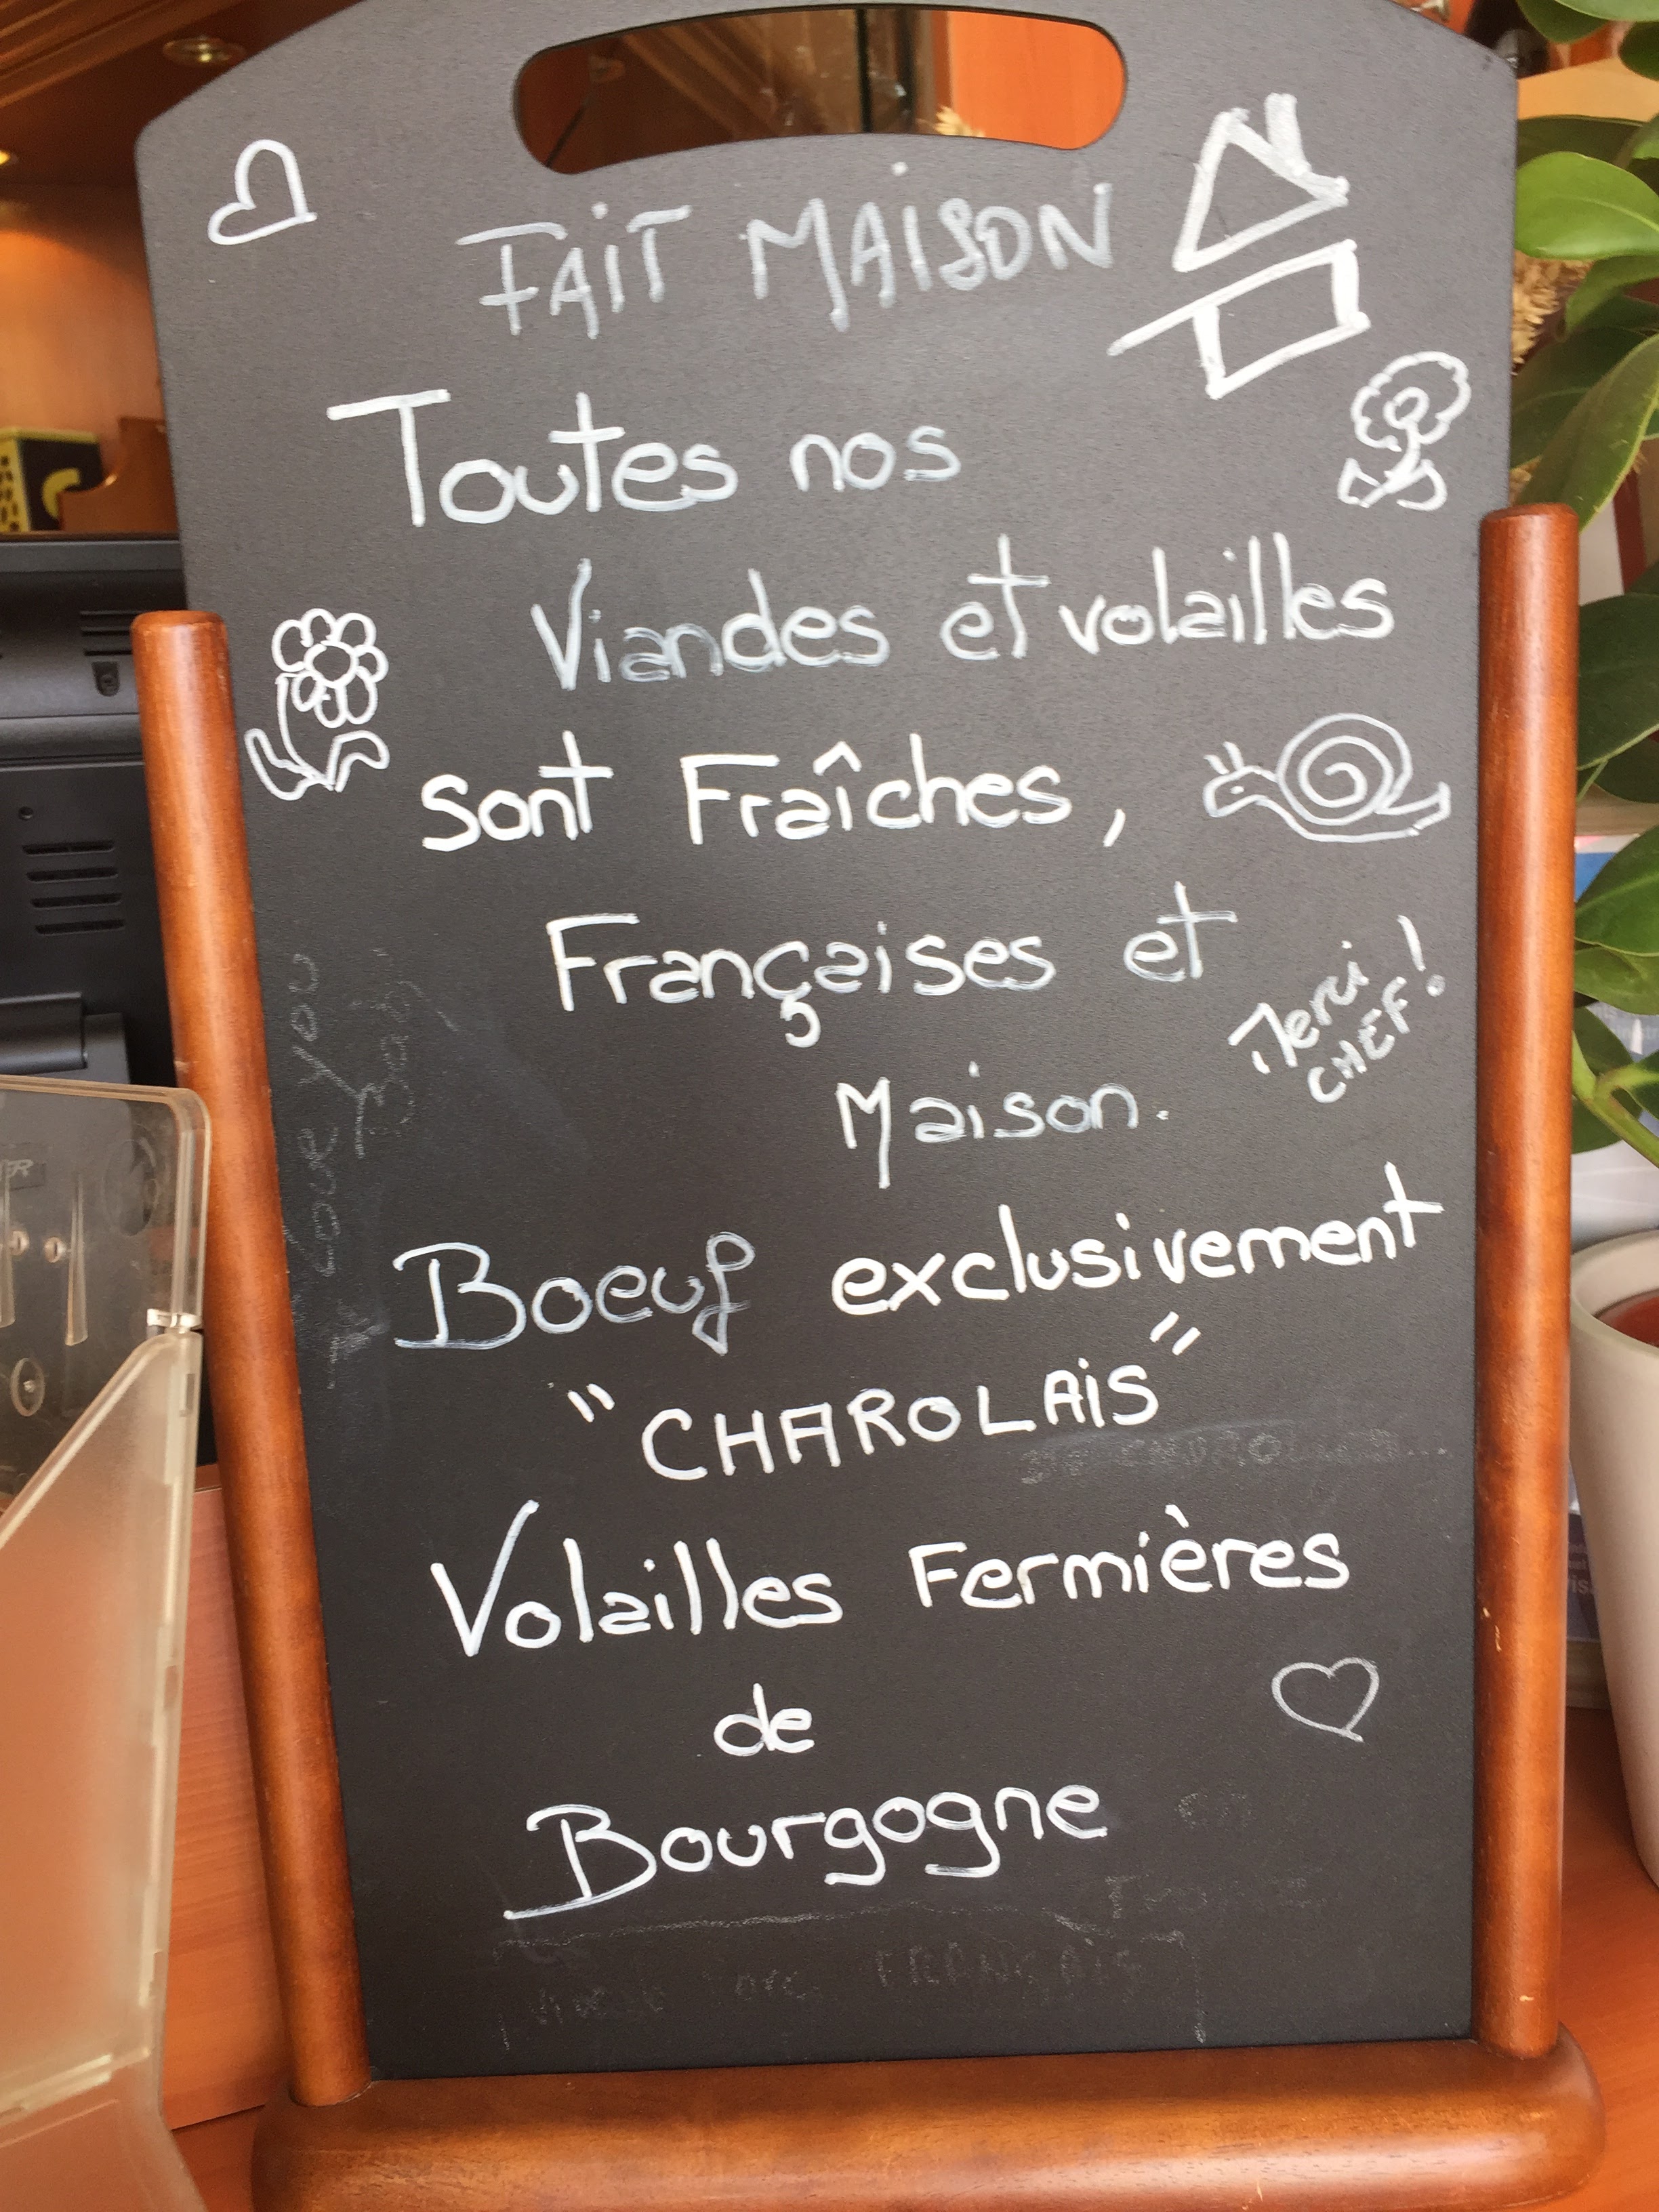 FAIT MAISON
Toutes nos
Viandes et volailles
sont Fraîches,
Françaises et
Merci
CHEF!
Maison.
Boeuf exclusivement
"CHAROLAIS"
Volailles Fermières
de
Bourgogne
Love you
FRANÇAIS